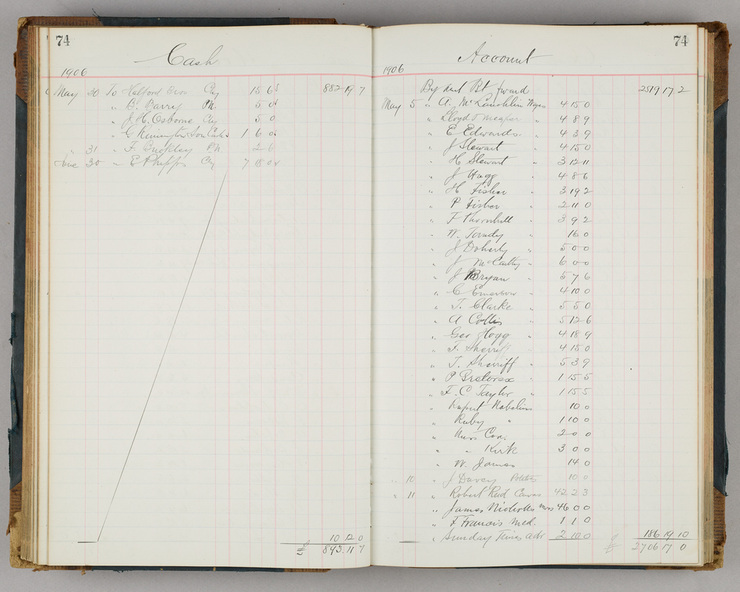 74
Cash
1906
May 30 To Halford Bros Cly 15 6
" B. Barry Pk. 5 0
" J. H. Osborne Cly 5 0
" G. Kennington 1 6 0
" 31 " F. Buckley Pk 2 6
June 30 " E Phipps Cly 7 18 0
882 19 7
10 12 0
£ 893 11 7
74
Account
1906
By Amt Bt forward 2519 17 2
May 5 " A. McLoughlin Wages 4 15 0
" Lloyd " 4 8 9
" E Edwards " 4 3 9
" J Stewart " 4 15 0
" H Stewart " 3 12 11
" J Hagg " 4 8 6
" H Fisher " 3 19 2
" P Fisher " 2 11 0
" F Thornhill " 3 9 2
" W. " 16 0
" J Doherty " 5 0 0
" J McCarthy " 6 0 0
" J Bryan " 5 7 6
" C Emerson " 4 10 0
" T. Clarke " 5 5 0
" A Collis " 5 12 6
" Geo Hogg " 4 18 9
" F. Sherriff " 4 15 0
" T. Sherriff " 5 3 9
" P " 1 15 5
" F. C Taylor " 1 15 5
" Rupert 10 0
" Ruby " 1 10 0
" Miss Con. 2 0 0
" " Kirk 3 0 0
" W. James 14 0
" 10 " J Davey Potatoes 10 0
" 11 " Robert Reid Canvas 42 2 3
" James Nicholls 46 0 0
" F Francis Med. 1 1 0
" Sunday Times Adv 2 10 0
186 19 10
£ 2706 17 0